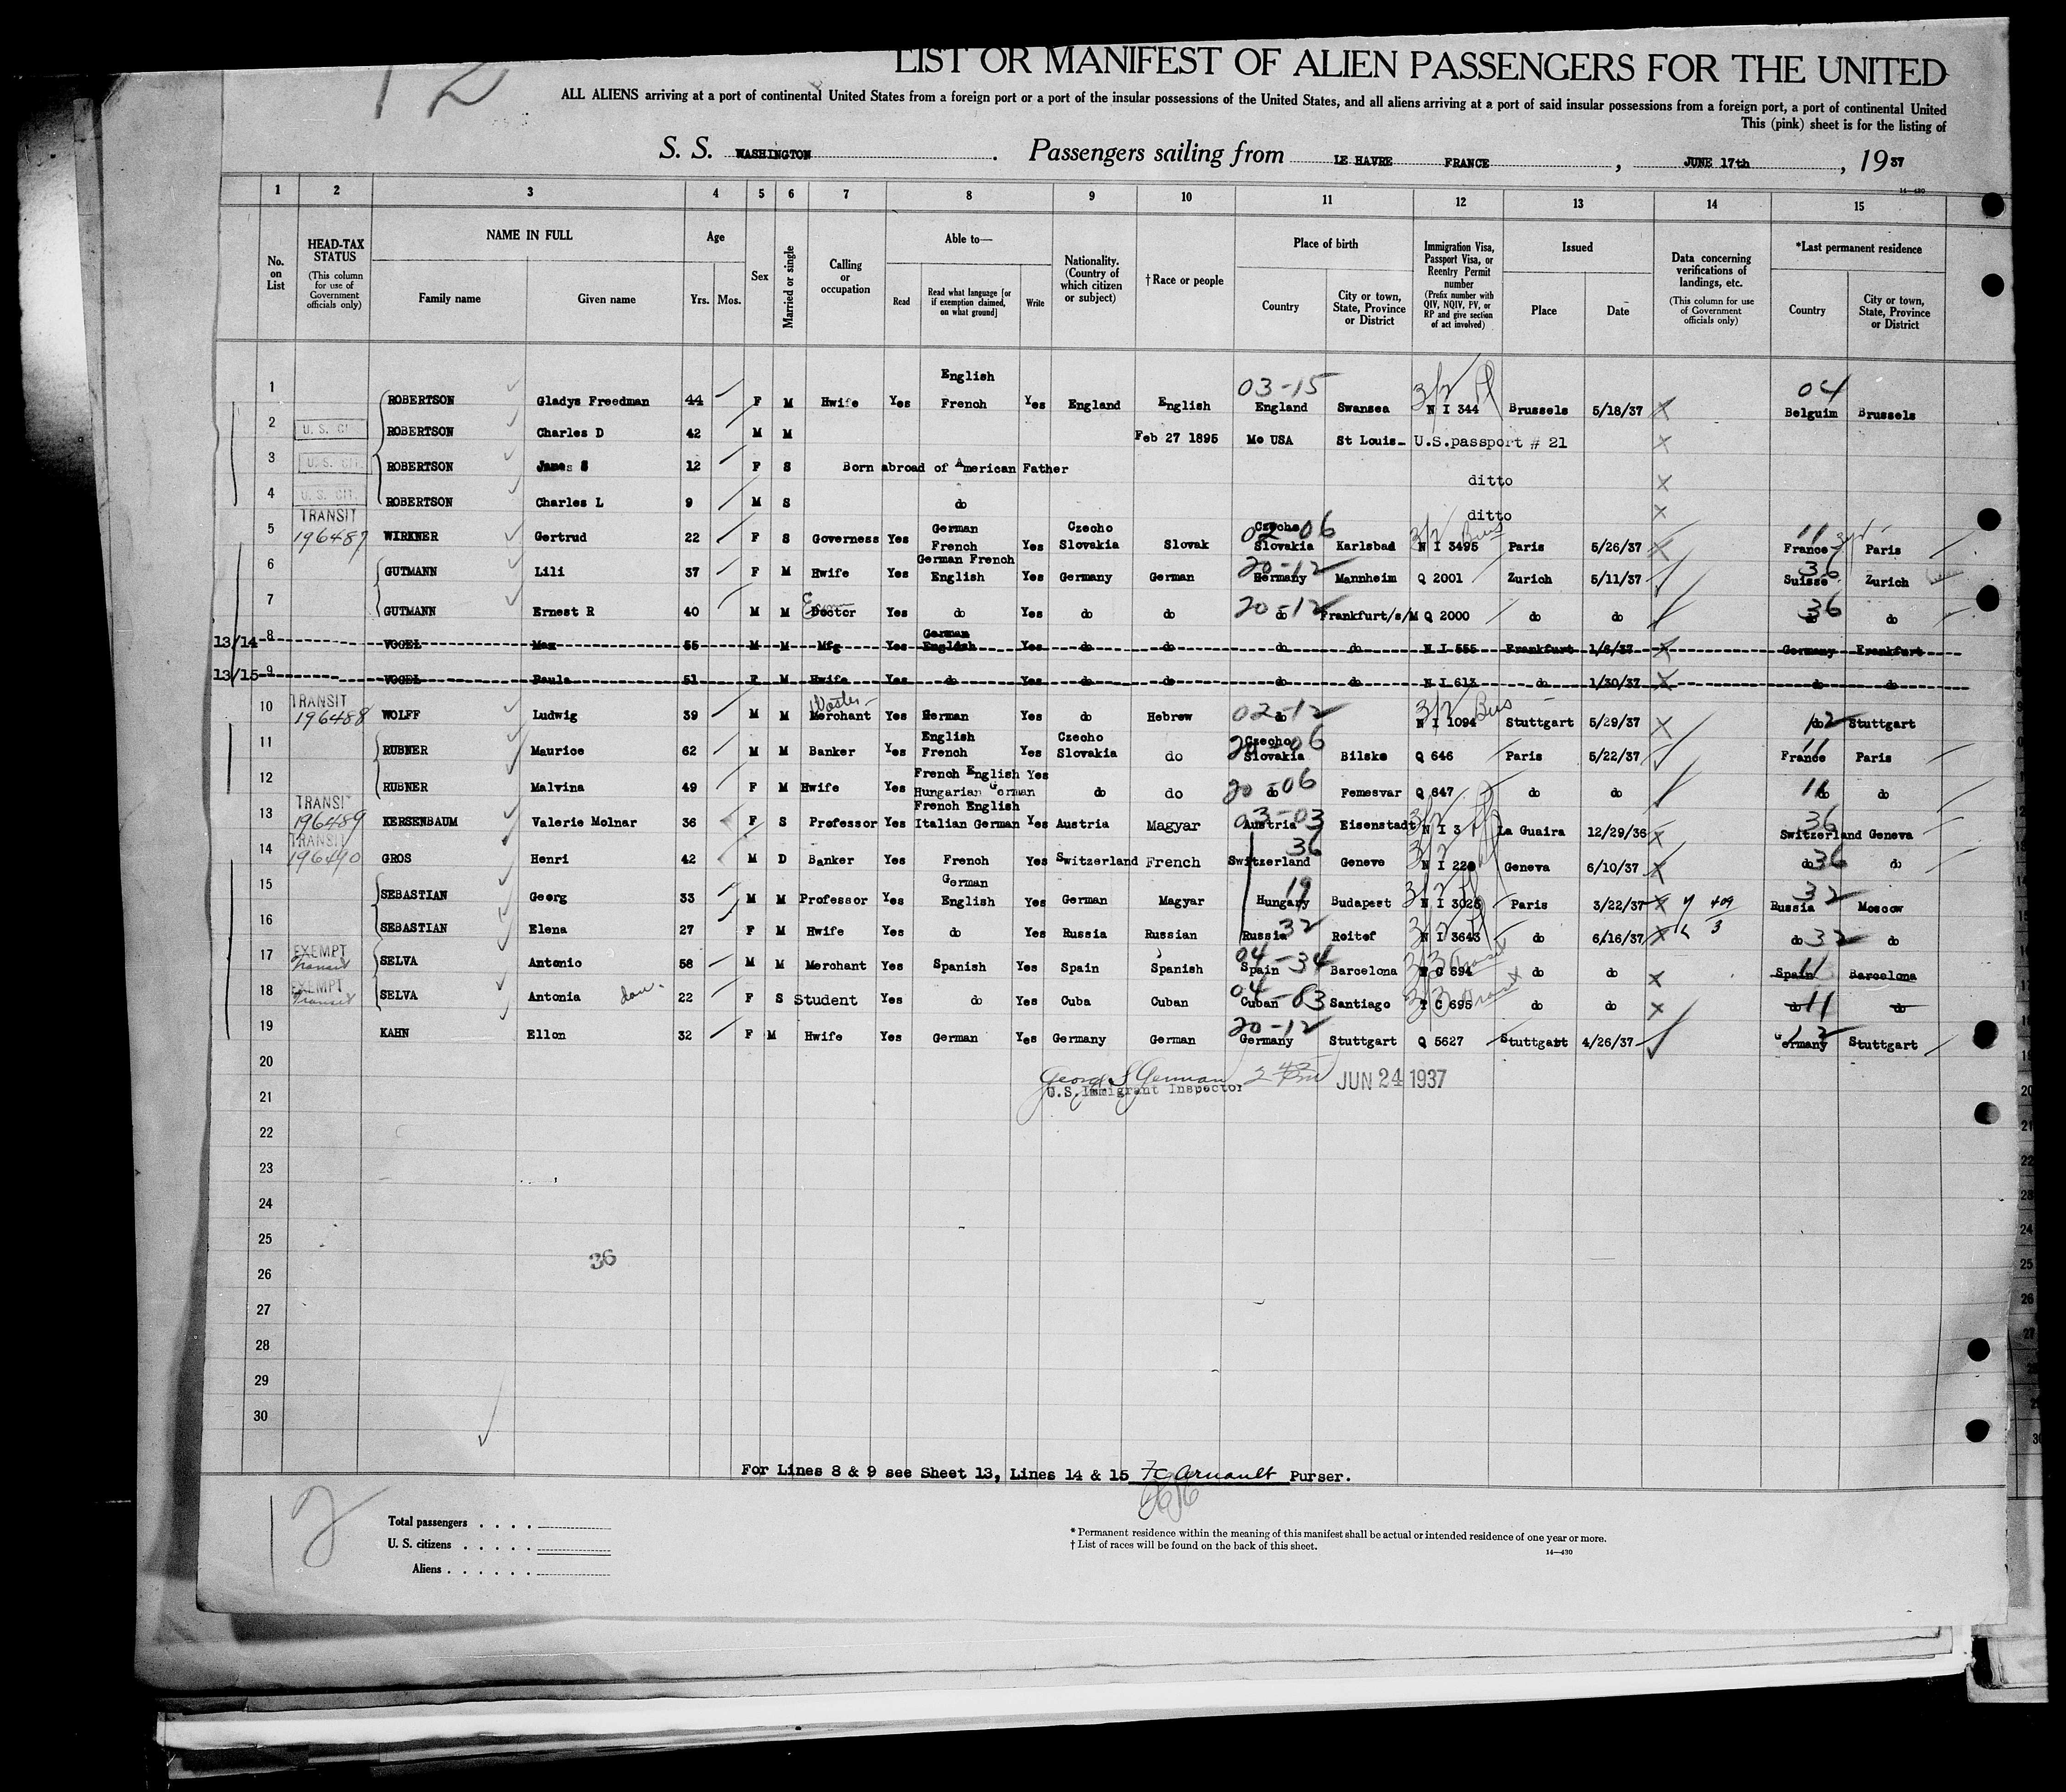 12
LIST OR MANIFEST OF ALIEN PASSENGERS FOR THE UNITED
ALL ALIENS arriving at a port of continental United States from a foreign port or a port of the insular possessions of the United States, and all aliens arriving at a port of said insular possessions from a foreign port, a port of continental United
This (pink) sheet is for the listing of
S. S. WASHINGTON . Passengers sailing from LE HAVRE FRANCE , JUNE 17th , 1937
14—430
1 2 3 4 5 6 7 8 9 10 11 12 13 14 15
No. on List
HEAD-TAX STATUS (This column for use of Government officials only)
NAME IN FULL Family name Given name
Age Yrs. Mos.
Sex
Married or single
Calling or occupation
Able to— Read Read what language [or if exemption claimed, on what ground] Write
Nationality. (Country of which citizen or subject)
† Race or people
Place of birth Country City or town, State, Province or District
Immigration Visa, Passport Visa, or Reentry Permit number (Prefix number with QIV, NQIV, PV, or RP and give section of act involved)
Issued Place Date
Data concerning verifications of landings, etc. (This column for use of Government officials only)
*Last permanent residence Country City or town, State, Province or District
1 ROBERTSON Gladys Freedman 44 F M Hwife Yes English French Yes England English 03-15 England Swansea 3/2 N I 344 Brussels 5/18/37 X 04 Belguim Brussels
2 U. S. CIT. ROBERTSON Charles D 42 M M Feb 27 1895 Mo USA St Louis- U.S.passport # 21 X
3 U. S. CIT. ROBERTSON James S 12 F S Born abroad of American Father ditto X
4 U. S. CIT. ROBERTSON Charles L 9 M S do ditto X
5 TRANSIT 196487 WIRKNER Gertrud 22 F S Governess Yes German French Yes Czecho Slovakia Slovak 02-06 Czecho Slovakia Karlsbad 3/2 Bus N I 3495 Paris 5/26/37 X 11 France Paris
6 GUTMANN Lili 37 F M Hwife Yes German French English Yes Germany German 20-12 Germany Mannheim Q 2001 Zurich 5/11/37 36 Suisse Zurich
7 GUTMANN Ernest R 40 M M Doctor Yes do Yes do do 20-12 do Frankfurt/s/M Q 2000 do do 36 do do
13/14 8 VOGEL Max 55 M M Mfg Yes German English Yes do do do do N I 555 Frankfurt 1/6/37 X Germany Frankfurt
13/15 9 VOGEL Paula 51 F M Hwife Yes do Yes do do do do N I 613 do 1/30/37 X do do
10 TRANSIT 196488 WOLFF Ludwig 39 M M Merchant Yes German Yes do Hebrew 02-12 do 3/2 Bus N I 1094 Stuttgart 5/29/37 X 12 do Stuttgart
11 RUBNER Maurice 62 M M Banker Yes English French Yes Czecho Slovakia do 20-06 Czecho Slovakia Bilske Q 646 Paris 5/22/37 11 France Paris
12 RUBNER Malvina 49 F M Hwife Yes French English Hungarian German Yes do do 20-06 do Femesvar Q 647 do do 11 do do
13 TRANSIT 196489 KERSENBAUM Valerie Molnar 36 F S Professor Yes French English Italian German Yes Austria Magyar 03-03 Austria Eisenstadt 3/2 N I 3 La Guaira 12/29/36 X 36 Switzerland Geneva
14 TRANSIT 196490 GROS Henri 42 M D Banker Yes French Yes Switzerland French 36 Switzerland Geneve 3/2 N I 228 Geneva 6/10/37 X 36 do do
15 SEBASTIAN Georg 33 M M Professor Yes German English Yes German Magyar 19 Hungary Budapest 3/2 N I 3026 Paris 3/22/37 X 409 32 Russia Moscow
16 SEBASTIAN Elena 27 F M Hwife Yes do Yes Russia Russian 32 Russia Reitof 3/2 N I 3643 do 6/16/37 X 3 32 do do
17 EXEMPT Transit SELVA Antonio 58 M M Merchant Yes Spanish Yes Spain Spanish 04-34 Spain Barcelona 3/3 Transit C 694 do do X 11 Spain Barcelona
18 EXEMPT Transit SELVA Antonia dau. 22 F S Student Yes do Yes Cuba Cuban 04-03 Cuban Santiago 3/3 Transit T C 695 do do X 11 do do
19 KAHN Ellon 32 F M Hwife Yes German Yes Germany German 20-12 Germany Stuttgart Q 5627 Stuttgart 4/26/37 12 Germany Stuttgart
20
George S German JUN 24 1937
U.S. Immigrant Inspector
21
22
23
24
25
36
26
27
28
29
30
For Lines 8 & 9 see Sheet 13, Lines 14 & 15 Arnault Purser.
12
Total passengers . . . .
U. S. citizens . . . . .
Aliens . . . . . .
* Permanent residence within the meaning of this manifest shall be actual or intended residence of one year or more.
† List of races will be found on the back of this sheet.
14—430